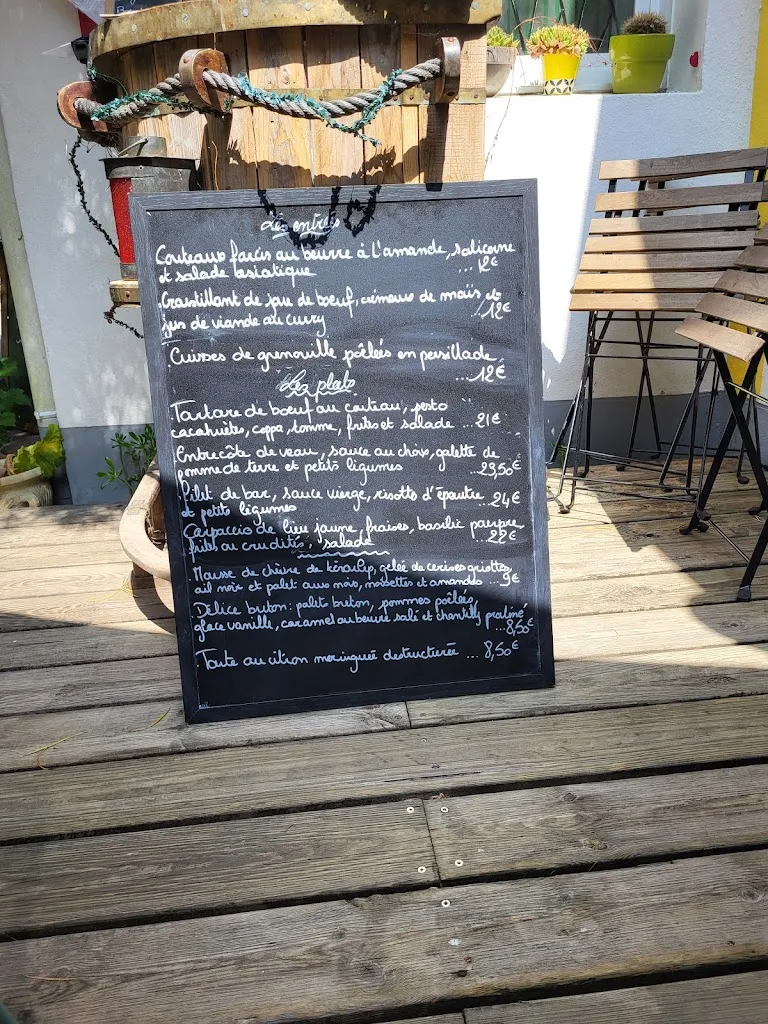 Les entrées
Couteaux farcis au beurre à l'amande, salicorne
et salade asiatique ... 12€
Croustillant de joue de boeuf, crémeux de maïs et
jus de viande au curry ... 12€
Cuisses de grenouille pôelées en persillade
... 12€
Les plats
Tartare de boeuf au couteau, pesto
cacahuètes, coppa, tomme, frites et salade ... 21€
Entrecôte de veau, sauce au choix, galette de
pomme de terre et petits légumes ... 23,50€
Filet de bar, sauce vierge, risotto d'épeautre ... 24€
et petits légumes
Carpaccio de lieu jaune, fraises, basilic pourpre,
frites ou crudités, salade ... 22€
Mousse de chèvre de, gelée de cerises griottes,
ail noir et palet aux noix, noisettes et amandes ... 9€
Délice breton: palet breton, pommes poêlées,
glace vanille, caramel au beurre salé et chantilly praliné
... 8,50€
Tarte au citron meringuée destructurée ... 8,50€